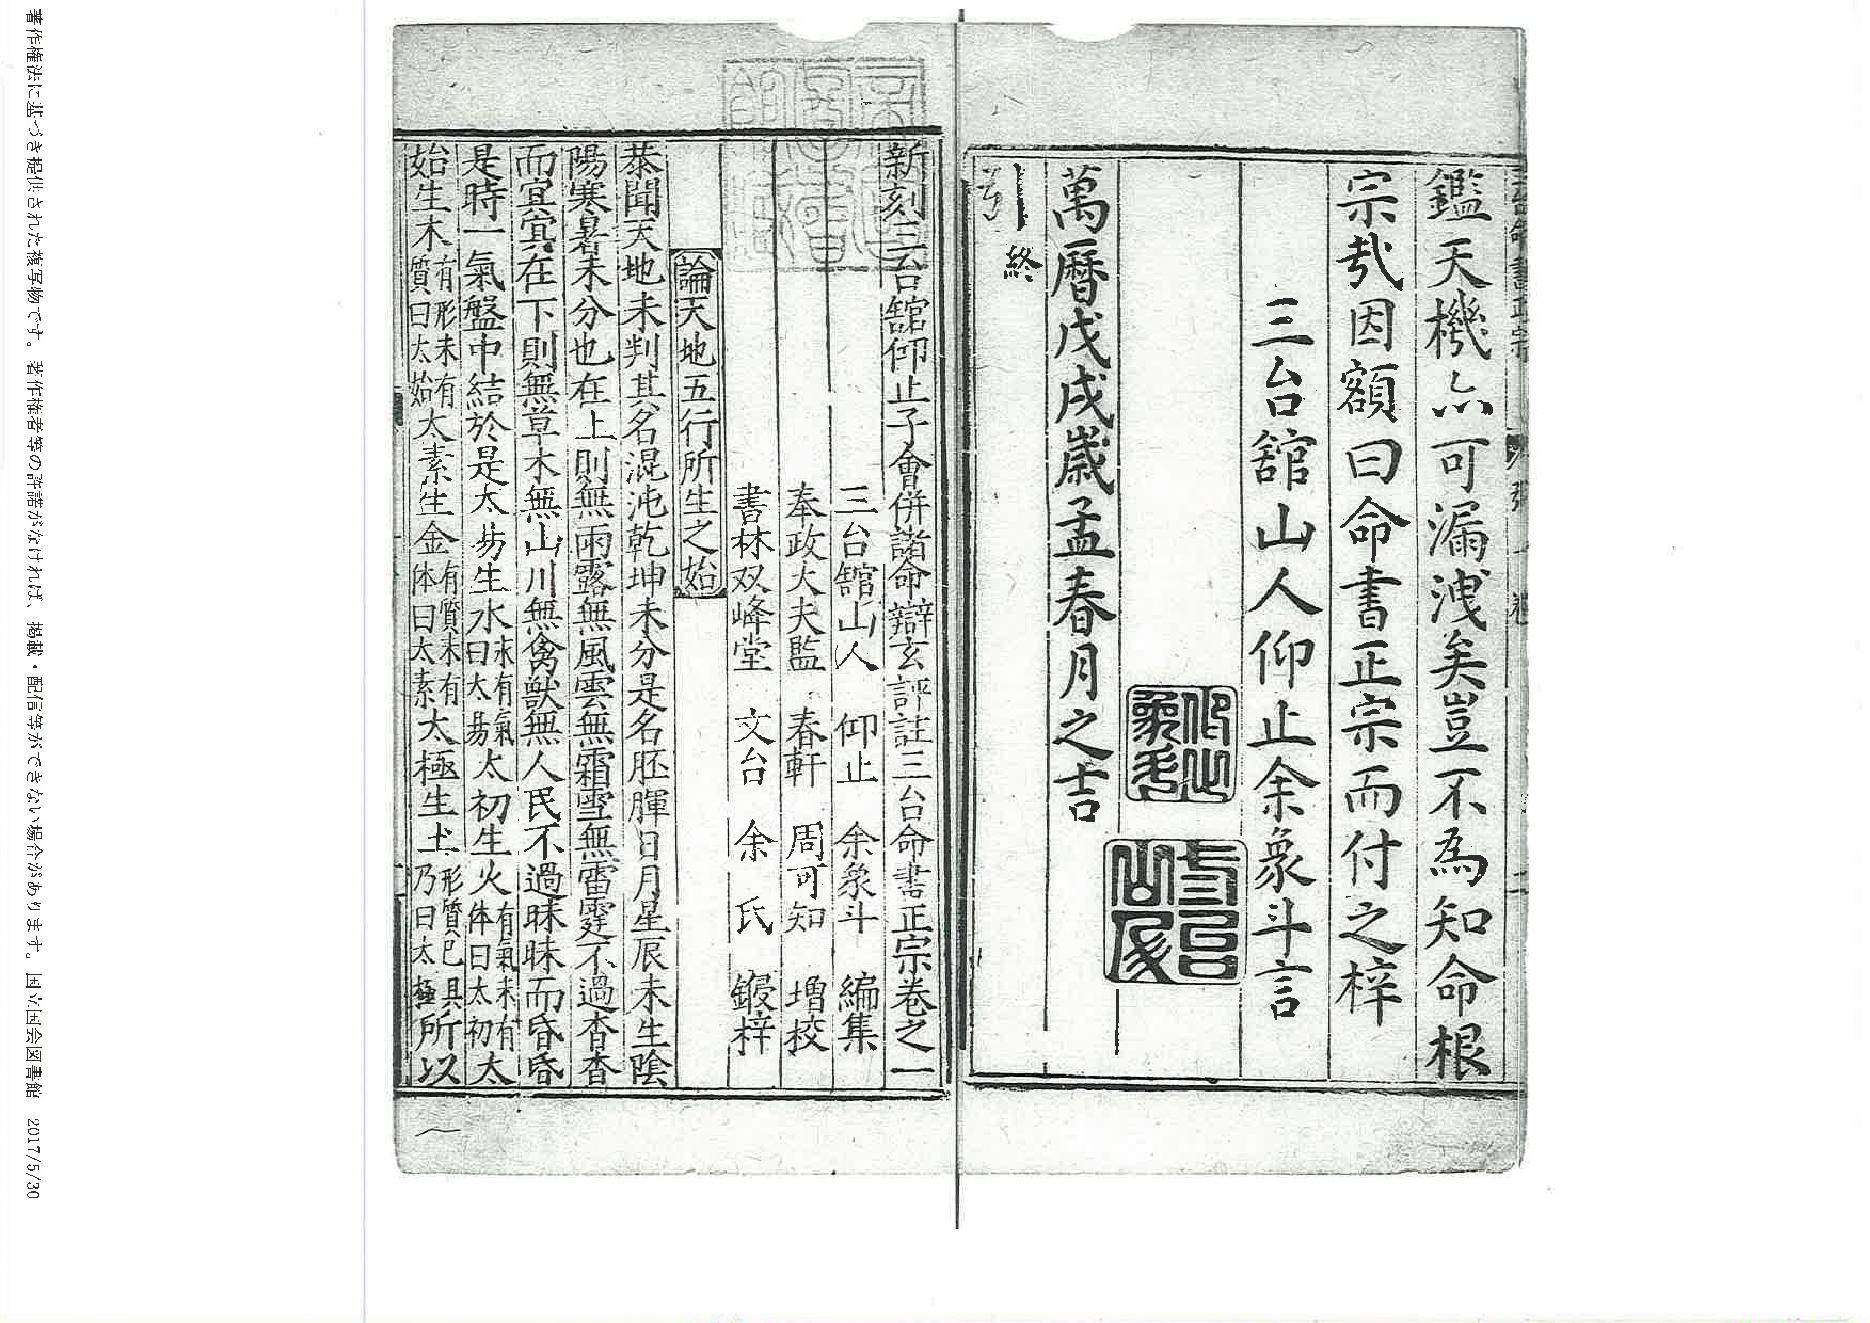 鑑天機亦可漏洩矣豈不為知命根
宗哉因額曰命書正宗而付之梓
三台舘山人仰止余象斗言
萬曆戊戌歲孟春月之吉
引終
新刻三台舘仰止子會併諸命辯玄評註三台命書正宗卷之一
三台舘山人 仰止 余象斗 編集
奉政大夫監 春軒 周可知 增校
書林双峰堂 文台 余氏 鋟梓
論天地五行所生之始
恭聞天地未判其名混沌乾坤未分是名胚腪日月星辰未生陰
陽寒暑未分也在上則無雨露無風雲無霜雪無雷霆不過杳杳
而冥冥在下則無草木無山川無禽獸無人民不過昧昧而昏昏
是時一氣盤中結於是太昜生水未有氣曰太昜太初生火有氣未有体曰太初太
始生木有形未有質曰太始太素生金有質未有体曰太素太極生土形質已具乃曰太極所以
著作権法に基づき提供された複写物です。著作権者等の許諾がなければ、掲載・配信等ができない場合があります。国立国会図書館 2017/5/30